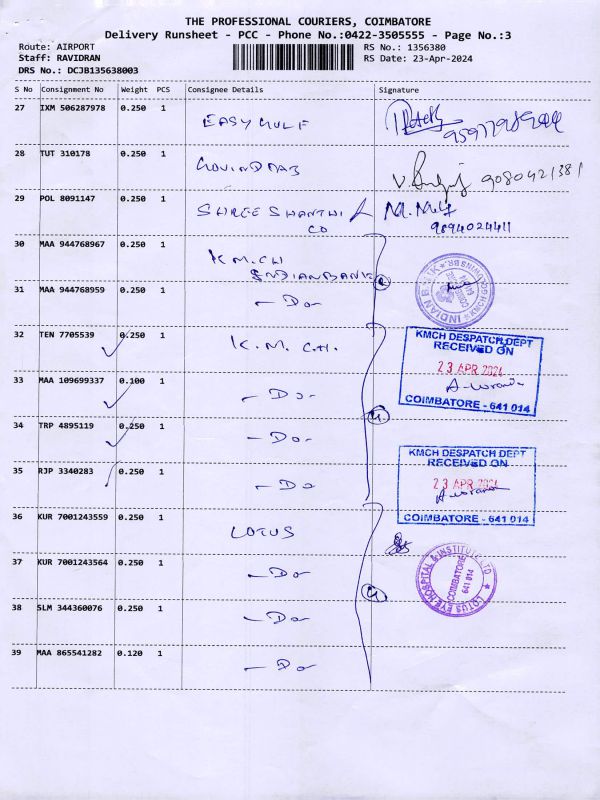 THE PROFESSIONAL COURIERS, COIMBATORE
Delivery Runsheet - PCC - Phone No.:0422-3505555 - Page No.:3
Route: AIRPORT
RS No.: 1356380
Staff: RAVIDRAN
RS Date: 23-Apr-2024
DRS No.: DCJB135638003
S No Consignment No Weight PCS Consignee Details Signature
27 IXM 506287978 0.250 1 EASY GULF
28 TUT 310178 0.250 1 GOVINDRAJ 9080421381
29 POL 8091147 0.250 1 SHREE SHANTHI
CO 9894024411
30 MAA 944768967 0.250 1 K.M.CH
INDIAN BANK
INDIAN BANK
31 MAA 944768959 0.250 1 - Do -
32 TEN 7705539 0.250 1 K. M. C.H.
KMCH DESPATCH DEPT
RECEIVED ON
23 APR 2024
COIMBATORE - 641 014
33 MAA 109699337 0.100 1 - Do -
34 TRP 4895119 0.250 1 - Do -
35 RJP 3340283 0.250 1 - Do
KMCH DESPATCH DEPT
RECEIVED ON
23 APR 2024
COIMBATORE - 641 014
36 KUR 7001243559 0.250 1 LOTUS
37 KUR 7001243564 0.250 1 - Do -
LOTUS EYE HOSPITAL & INSTITUTE LTD
COIMBATORE
641 014
38 SLM 344360076 0.250 1 - Do -
39 MAA 865541282 0.120 1 - Do